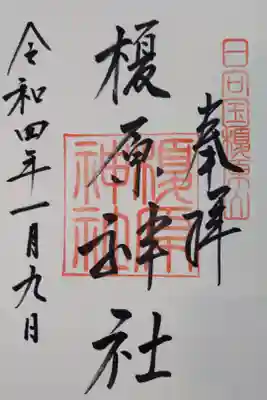 日向国榎原山
奉拝
榎原神社
榎原
神社
令和四年一月九日